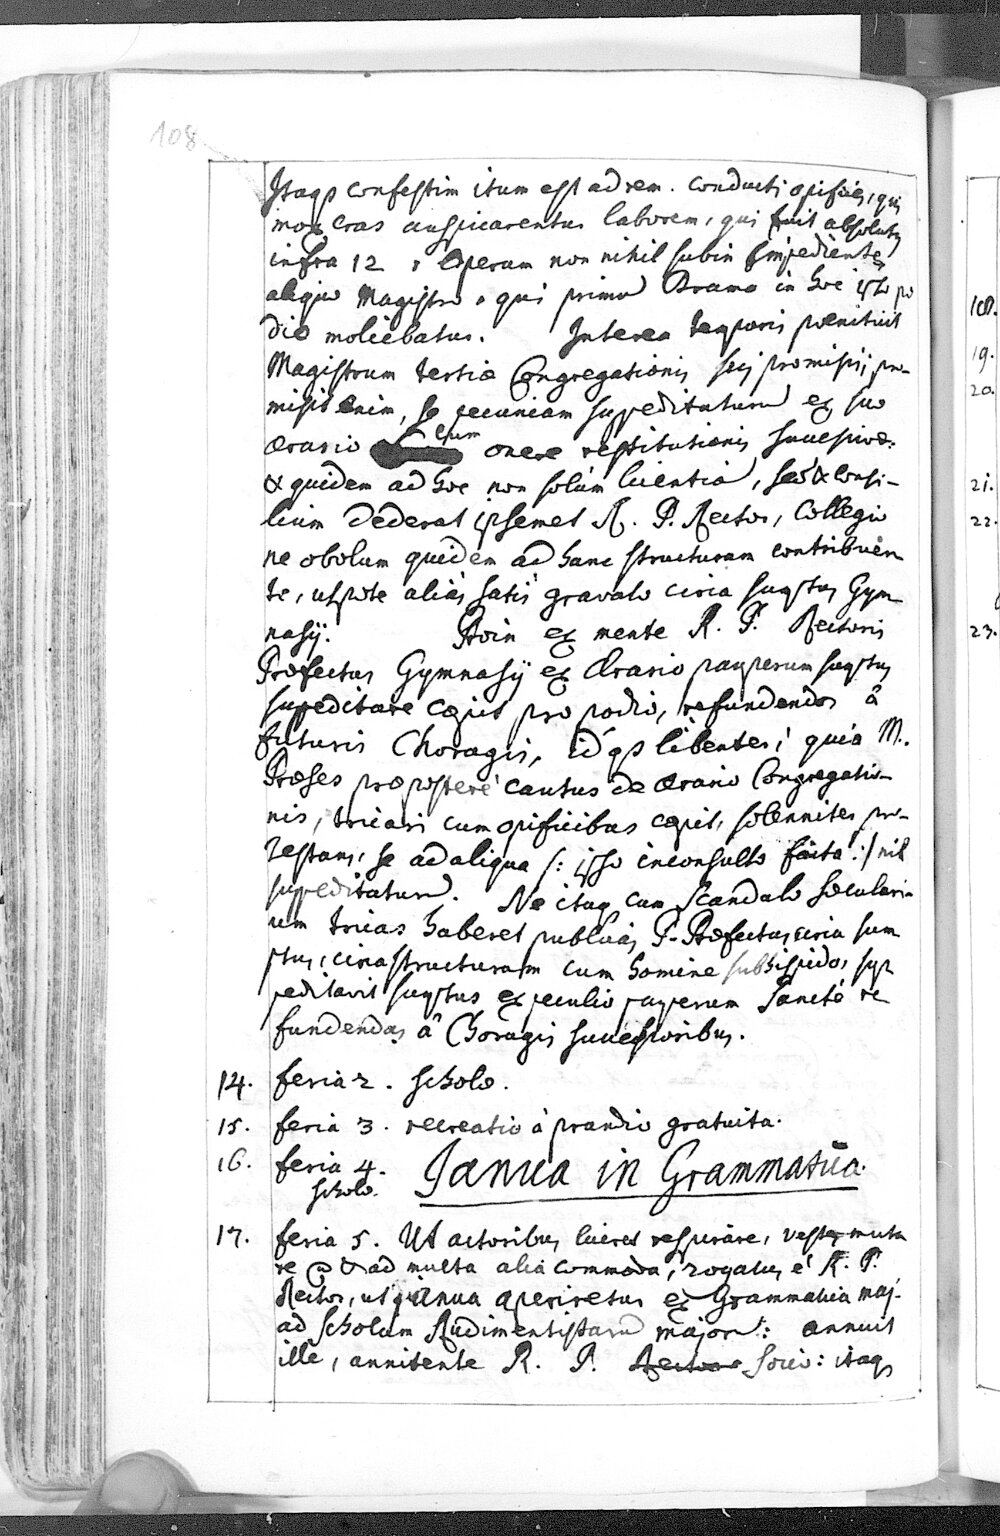 108
Itaqs confestim itum est ad rem. Conducti opifices, qui
mox cras auspicarentur laborem, qui fuit absolutus
infra 12, Operam non nihil subin impediente
aliquo Magistro, qui primū Drama in hoc isto po
dio moliebatur. Interea temporis poenituit
Magistrum tertiae Congregationis sui promissi; pro-
misit enim, se pecuniam suppeditaturū ex suo
aerario cum onere restitutionis successivae:
& quidem ad hoc non solùm licentiā, sed & consi-
lium dederat ipsemet R. P. Rector, Collegio
ne obolum quidem ad hanc structuram contribuen
te, utpote aliàs satis gravato circa sumptus Gym
nasij. Proin ex mente R. P. Rectoris
Praefectus Gymnasij ex Aerario pauperum sumptus
supeditare coepit pro podio, refundendos â
futuris Choragis, id´qs libenter; quia M.
Praeses praeposterè cautus de aerario Congregatio-
nis, tricari cum opificibus coepit, solenniter pro-
testans, se ad aliqua /: ipso inconsulto facta :/ nil
suppeditaturū. Ne itaqs cum scandalo saeculari-
um tricas haberet publicas, P. Praefectus circa sum
ptus, circa structuram cum homine subhispido, sup
peditavit sumptus ex peculio pauperum sanctè re
fundendas â Choragis successoribus.
14. feria 2. schola.
15. feria 3. recreatio à prandio gratuita.
16. feria 4. Ianua in Grammatica.
schola.
17. feria 5. Ut actoribus liceret respirare, vestes muta
re & ad multa alia commoda, rogatus é R. P.
Rector, ut ianua aperiretur ex Grammatica maj.
ad scholam Rudimentistarū majorū: annuit
ille, annitente R. P. Rectore socio: itaqs
10.
19.
20.
21.
22.
23.